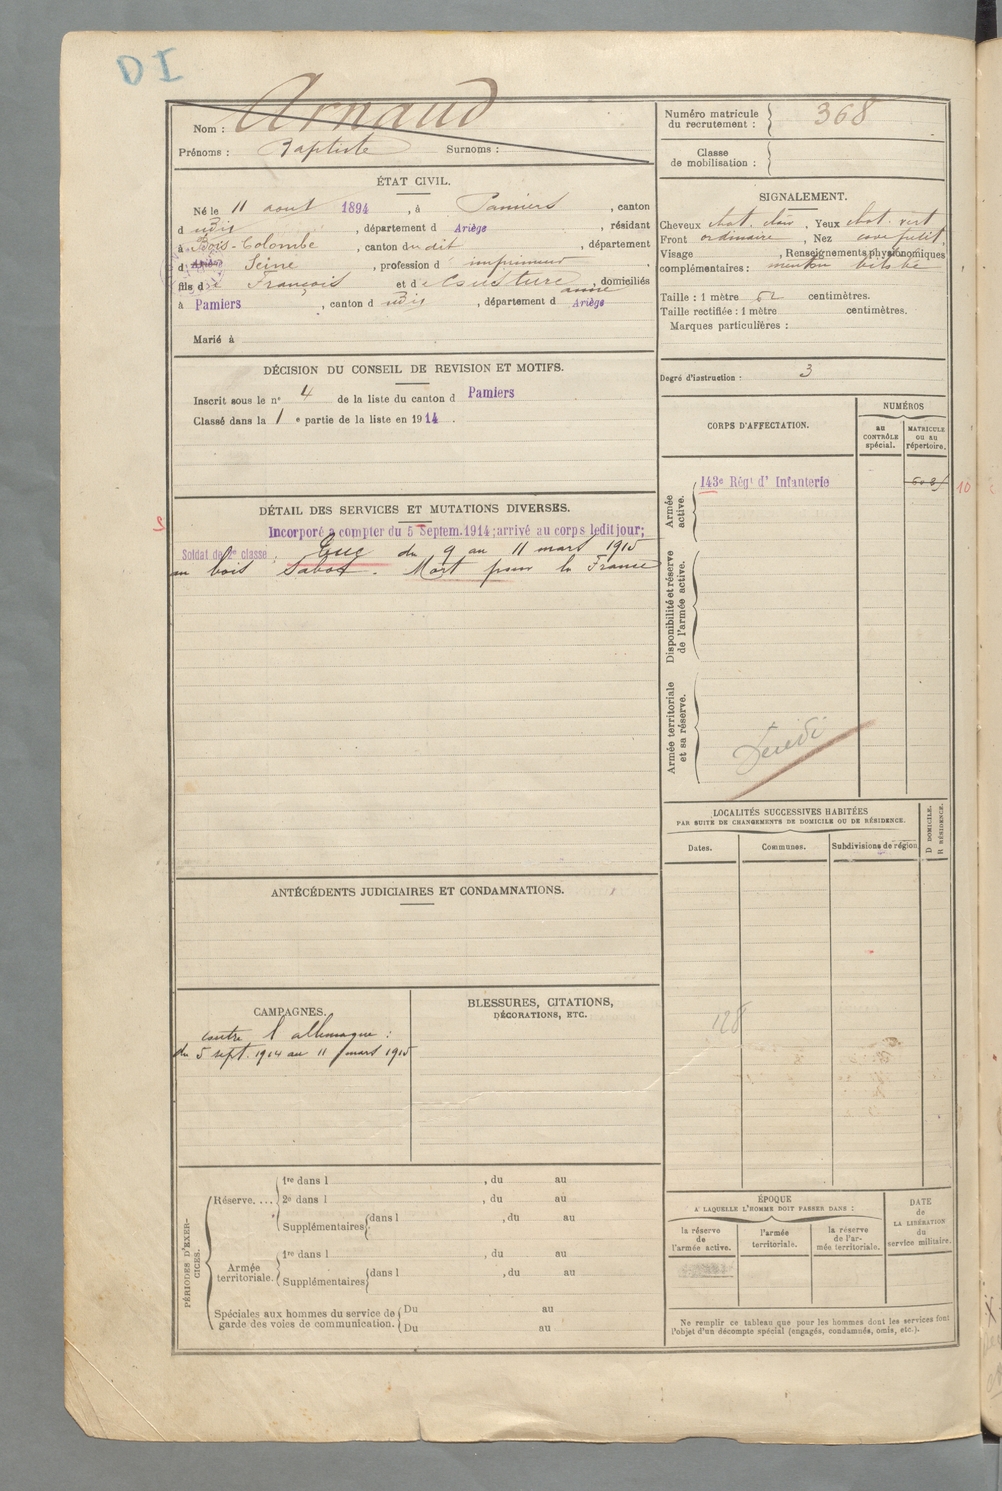 DI
Arnaud
Nom :
Prénoms : Baptiste Surnoms :
Numéro matricule
du recrutement : 368
Classe
de mobilisation :
ÉTAT CIVIL.
Né le 11 aout 1894, à Pamiers, canton
d udis, département d Ariège, résidant
à Bois-Colombe, canton du dit, département
d Seine, profession d imprimeur
fils de François et de domiciliés
à Pamiers, canton d udis, département d Ariège
Marié à
SIGNALEMENT.
Cheveux chat. clair, Yeux chat. vert
Front ordinaire, Nez cave petit,
Visage , Renseignements physionomiques
complémentaires : menton
Taille : 1 mètre 62 centimètres.
Taille rectifiée : 1 mètre centimètres.
Marques particulières :
Degré d'instruction : 3
DÉCISION DU CONSEIL DE REVISION ET MOTIFS.
Inscrit sous le nº 4 de la liste du canton d Pamiers
Classé dans la 1 e partie de la liste en 1914.
CORPS D'AFFECTATION.
NUMÉROS
au
CONTRÔLE
spécial.
MATRICULE
ou au
répertoire.
Armée
active.
143e Régt d' Infanterie
10
Disponibilité et réserve
de l'armée active.
Armée territoriale
et sa réserve.
DÉTAIL DES SERVICES ET MUTATIONS DIVERSES.
Incorporé à compter du 5 Septem. 1914; arrivé au corps ledit jour;
Soldat de 2e classe. Tué du 9 au 11 mars 1915
au bois Sabot. Mort pour la France
LOCALITÉS SUCCESSIVES HABITÉES
PAR SUITE DE CHANGEMENTS DE DOMICILE OU DE RÉSIDENCE.
D DOMICILE.
R RÉSIDENCE.
Dates.
Communes.
Subdivisions de région
128
ANTÉCÉDENTS JUDICIAIRES ET CONDAMNATIONS.
CAMPAGNES.
contre l'allemagne :
du 5 sept. 1914 au 11 mars 1915
BLESSURES, CITATIONS,
DÉCORATIONS, ETC.
PÉRIODES D'EXER-
CICES.
Réserve....
1re dans l , du au
2e dans l , du au
Supplémentaires dans l , du au
Armée
territoriale.
1re dans l , du au
Supplémentaires dans l , du au
Spéciales aux hommes du service de
garde des voies de communication.
Du au
Du au
ÉPOQUE
A LAQUELLE L'HOMME DOIT PASSER DANS :
la réserve
de
l'armée active.
l'armée
territoriale.
la réserve
de l'ar-
mée territoriale.
DATE
de
LA LIBÉRATION
du
service militaire.
Ne remplir ce tableau que pour les hommes dont les services font
l'objet d'un décompte spécial (engagés, condamnés, omis, etc.).